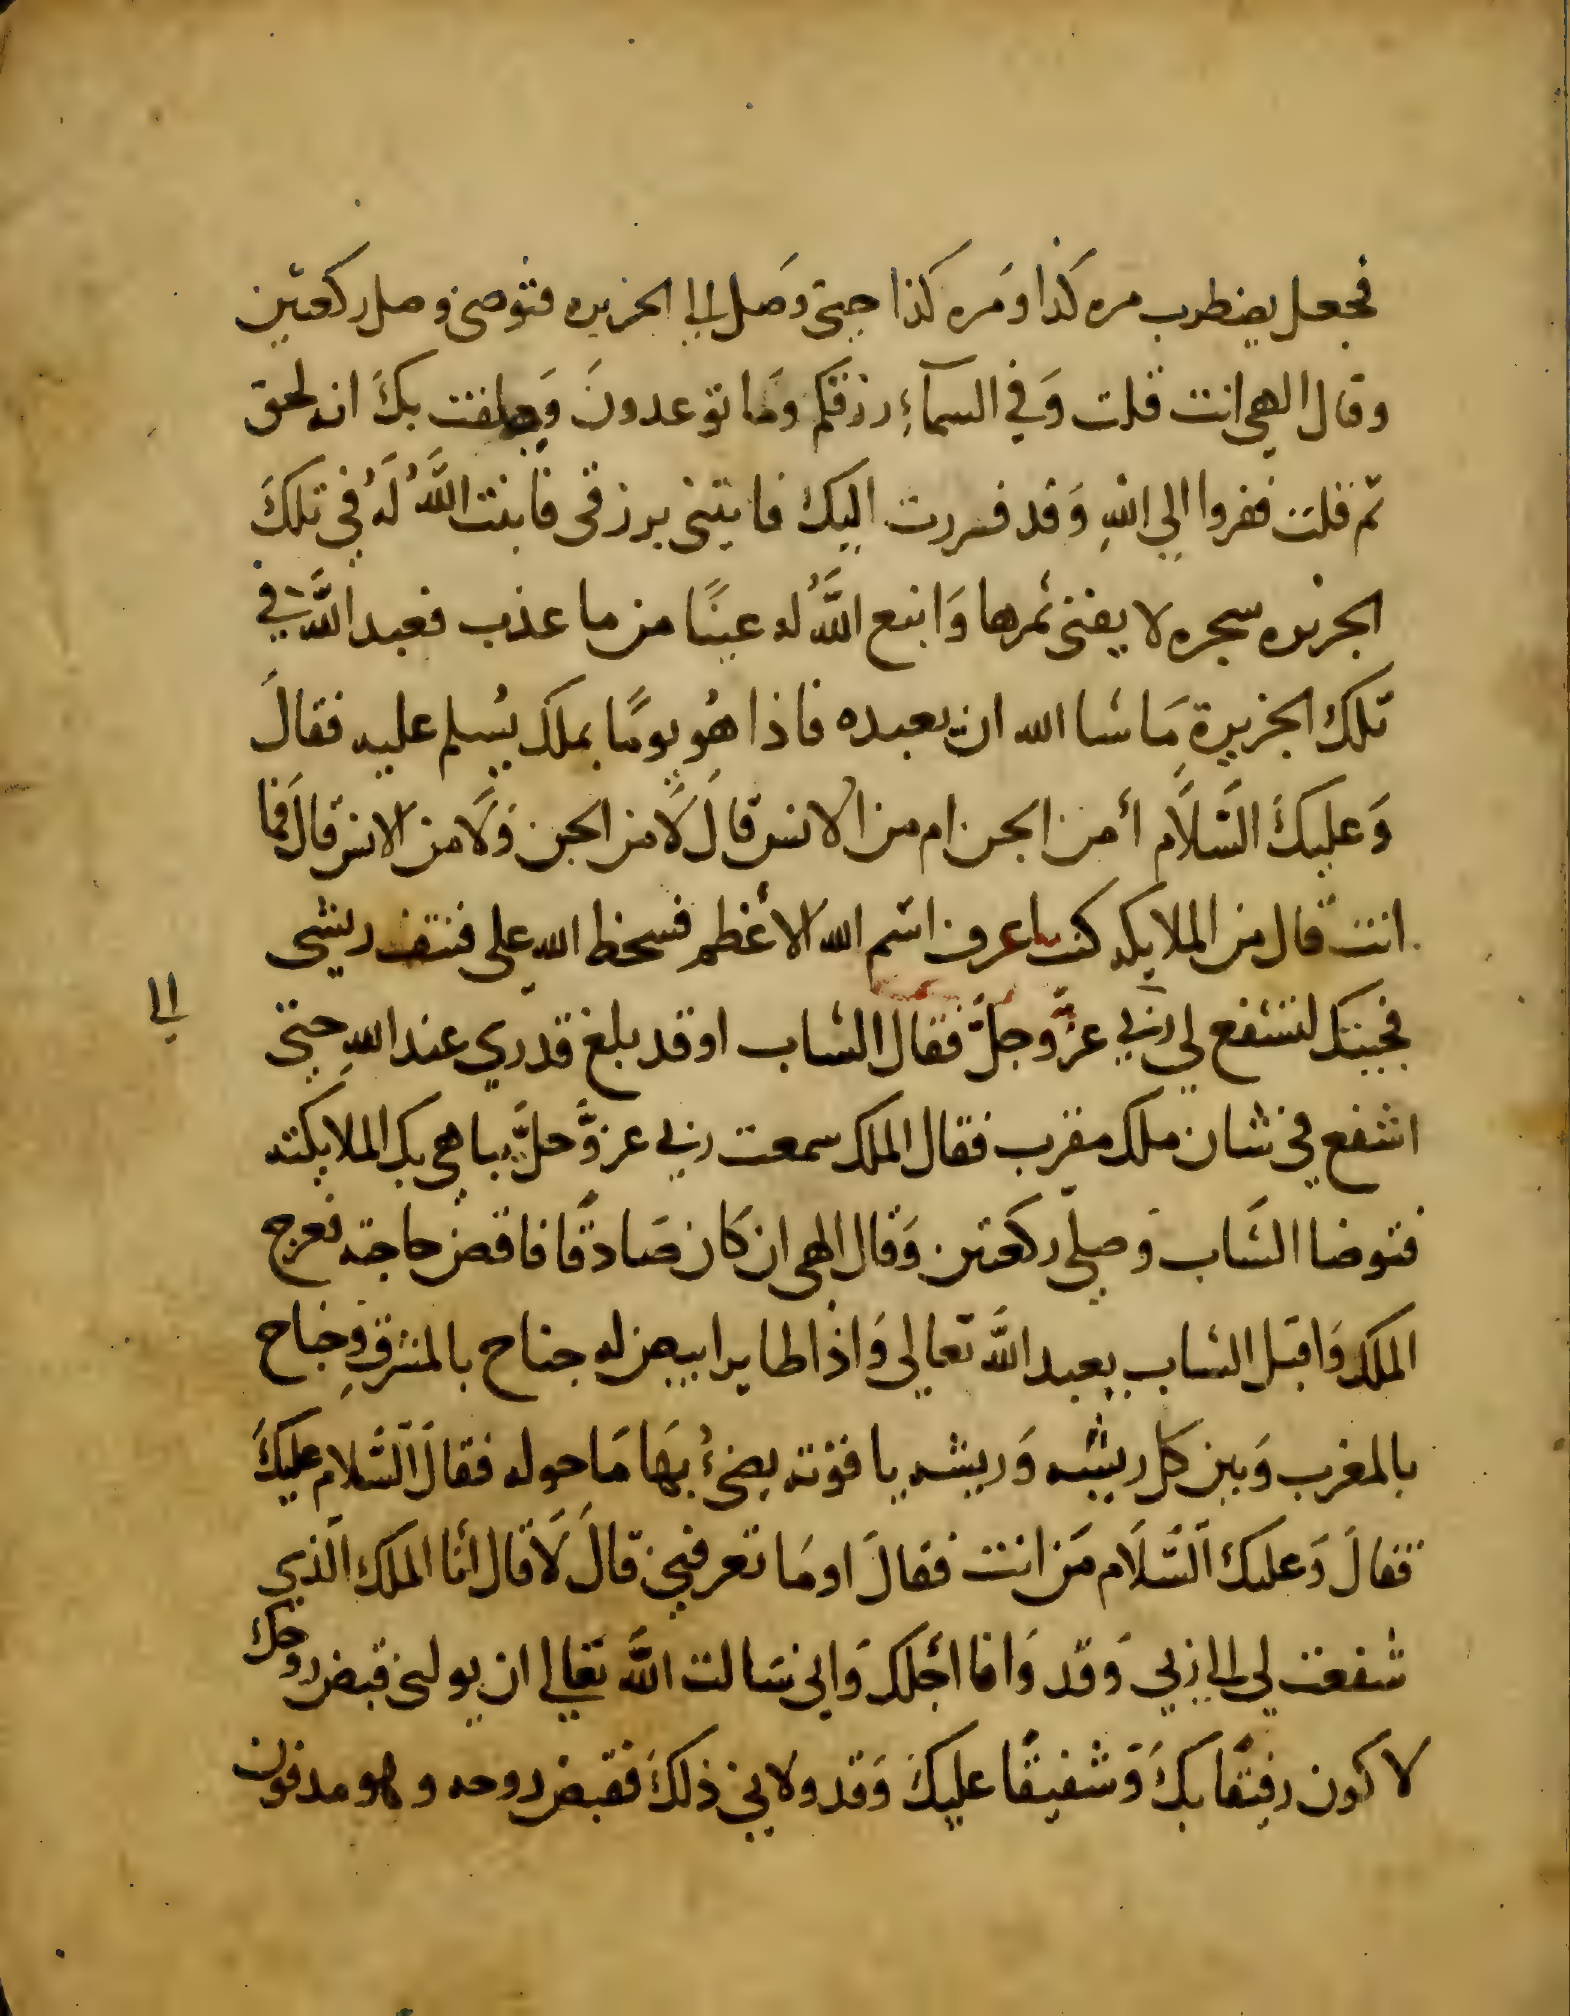 فجعل يضطرب مره كذا ومره كذا حتى وصل الى الجزيره فتوضى وصلى ركعتين
وقال الهي انت قلت وَفي السمآءِ رزقكم ومَا توعدونَ وَحلفت بكَ انه لحق
ثم قلت ففروا الي اللهِ وَقد فررت اليك فايتنى برزقى فانبت اللَّهُ لَهُ في تلكَ
الجزيره سجره لا يفنى ثمرها وَانبع اللَّهُ له عينًا من ما عذب فعبد اللَّهَ في
تلك الجزيرةِ مَا شا الله ان يعبده فاذا هُو يومًا بملك يُسلم عليه فقالَ
وَعليكَ السَّلاَم أمن الجن ام من الانس قالَ لاَ من الجن وَلاَ من الانس قالَ فما
انت قال من الملايكه كنت اعرف اسم الله الأعظم فسخط الله على فنتف ريشى
فجيتك لتشفع لي ربي عزَّ وجلَّ فقال الشاب اوقد بلغ قدري عند اللهِ حتى
الى
اشفع في شان ملك مقرب فقال الملك سمعت ربي عز وَّجلَّ يباهي بك الملايكته
فتوضا الشاب وَصلّي ركعتين وَقال الهى ان كان صَادقًا فاقض حاجته فعرج
الملك وَاقبل الشاب يعبد اللَّه تعالي وَاذا طاير ابيض له جناح بالمشرقِ وَجناح
بالمغرب وَبين كل ريشه وَريشه ياقوته يضيءُ بهَا مَا حوله فقالَ اَلسَّلام عليكَ
فقالَ وَعليك اَلسَّلاَم مَن انت فقالَ اومَا تعرفني قالَ لاَ قال أنا الملك الذي
شفعت لي الي ربي وَقد وَافا أجلك وَاني سَالت اللَّه تعَالي ان يوليني قبض روحك
لاكون رفيقًا بكَ وَشفيقًا عليكَ وَقد ولاني ذلكَ فقبض روحه وهو مدفون